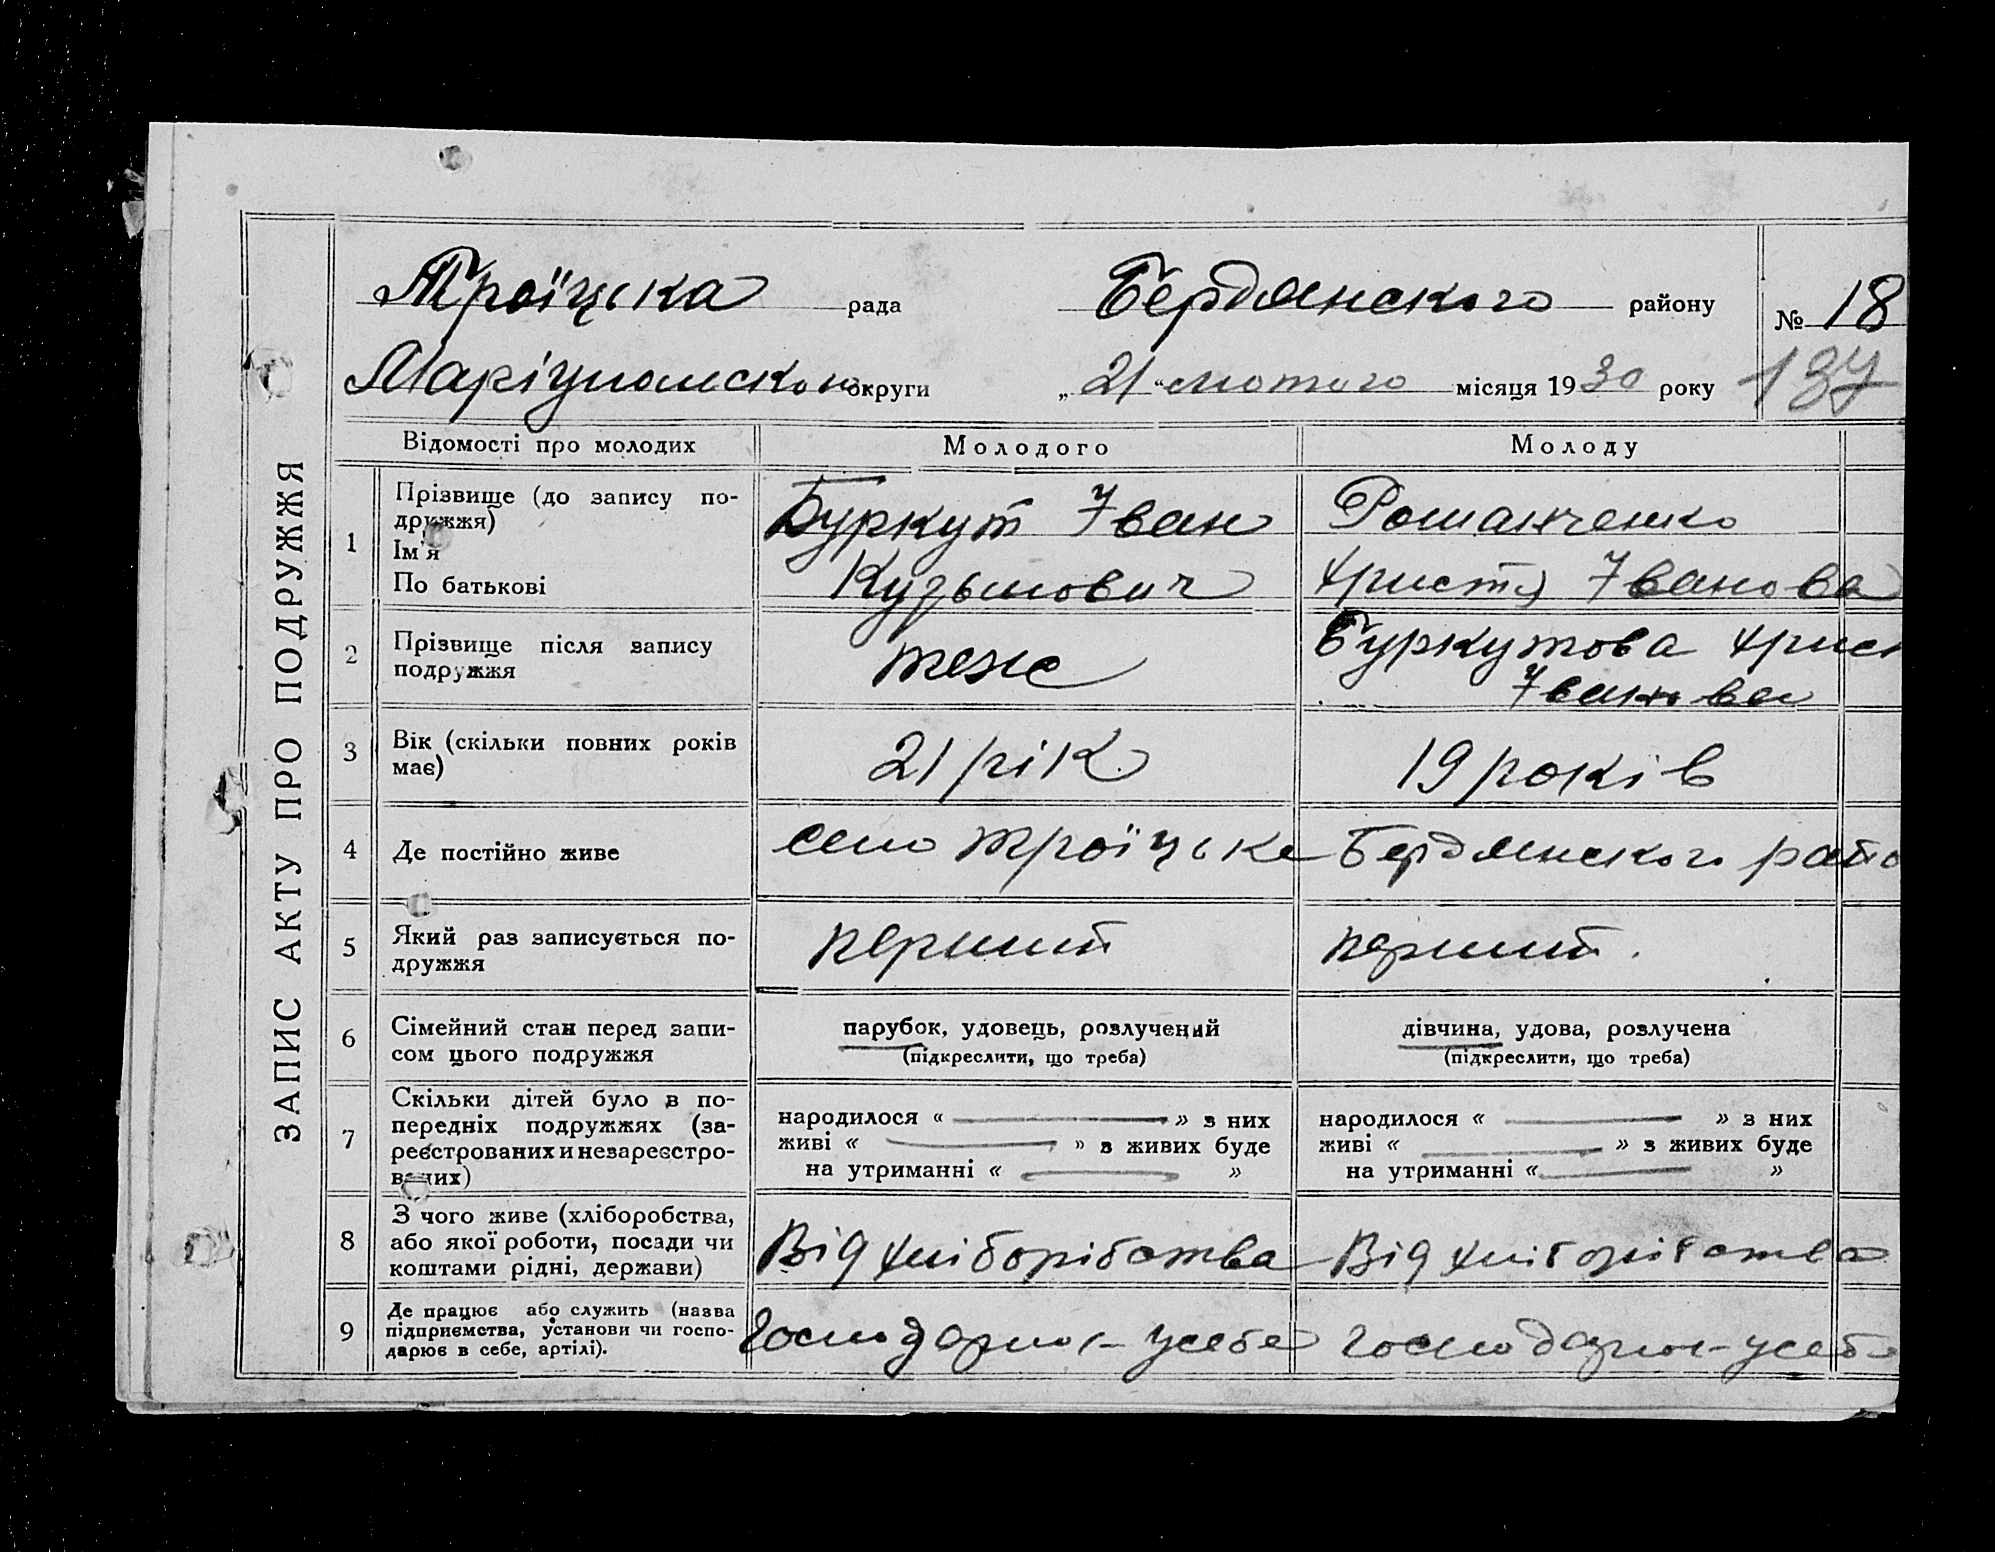 ЗАПИС АКТУ ПРО ПОДРУЖЖЯ
Троїцька рада Бердянского району № 18
Маріупольского округи „21“ лютого місяця 1930 року 137
Відомості про молодих Молодого Молоду
1 Прізвище (до запису по-
дружжя)
Ім'я
По батькові
Буркут Іван
Кузьмович
Романченко
Христя Іванова
2 Прізвище після запису
подружжя
теж
Буркутова Христ
Іванова
3 Вік (скільки повних років
має)
21 рік
19 років
4 Де постійно живе
село Троїцьке Бердянского райо
5 Який раз записується по-
дружжя
перший
перший.
6 Сімейний стан перед запи-
сом цього подружжя
парубок, удовець, розлучений
(підкреслити, що треба)
дівчина, удова, розлучена
(підкреслити, що треба)
7 Скільки дітей було в по-
передніх подружжях (за-
реєстрованих и незареєстро-
ваних)
народилося « — » з них
живі « — » з живих буде
на утриманні « — »
народилося « — » з них
живі « — » з живих буде
на утриманні « — »
8 З чого живе (хліборобства,
або якої роботи, посади чи
коштами рідні, держави)
Від хліборібства
Від хліборібства
9 Де працює або служить (назва
підприємства, установи чи госпо-
дарює в себе, артілі).
Господарює усебе
господарює усебе